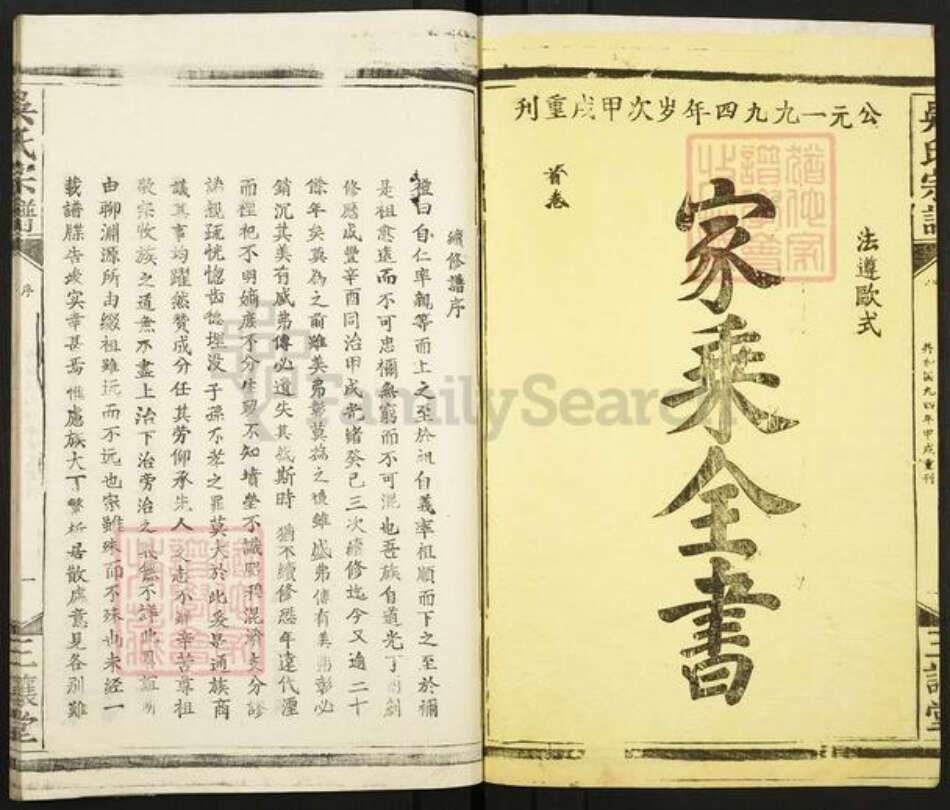 公元一九九四年岁次甲戌重刊
法遵歐式
家乘全書
首卷
共和國九四年甲戌重刊
吳氏宗譜
三讓堂
續修譜序
禮曰自仁率親等而上之至於祖自義率祖順而下之至於禰
是祖愈遠而不可忠禰無窮而不可混也吾族自道光丁創
修歷咸豐辛酉同治甲戌光緒癸巳三次續修迄今又逾二十
餘年矣莫為之前雖美弗彰莫為之後雖盛弗傳有美弗彰必
銷沉其美有盛弗傳必遺失其斯時猶不續修恐年遠代湮
而禋祀不明嫡庶不分生歿不知墳塋不識昭穆混淆支分
誅親疏恍惚齒德埋没子孫不孝之罪莫大於此爰是通族商
議其事均躍然贊成分任其勞仰承先人之志不辭辛苦尊祖
敬宗收族之道無不盡上治下治旁治之無不詳此
由聊淵源所由綴祖雖远而不远也宗雖殊而不殊也未經一
載譜牒告竣实幸甚焉惟慮族大丁繁析居散處意見各別難
吳氏宗譜
序
一
三讓堂
FamilySearch